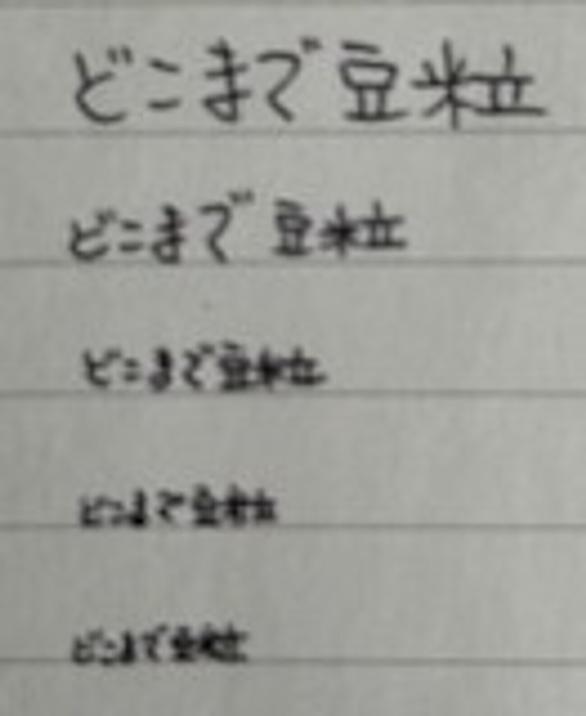 どこまで豆粒
どこまで豆粒
どこまで豆粒
どこまで豆粒
どこまで豆粒